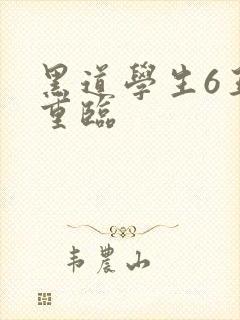 黑道學生6王
重臨
韦農山